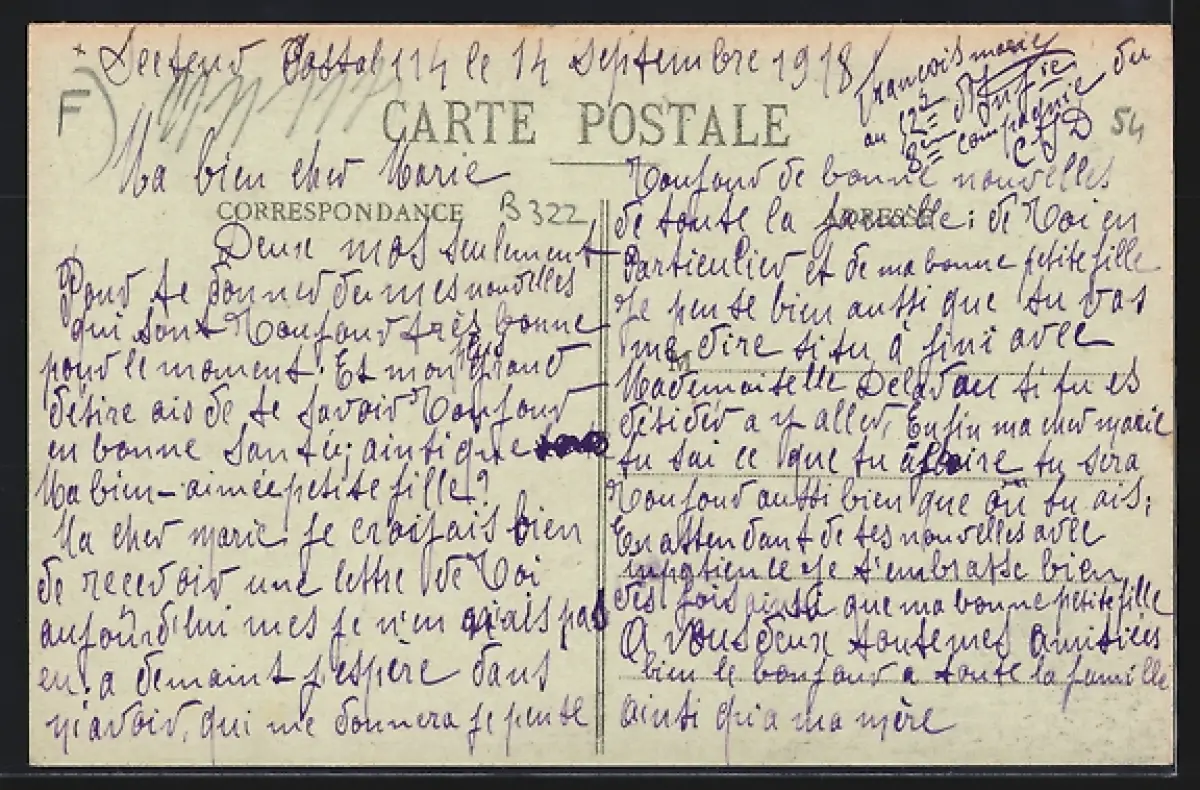 Secteur Postal 114 le 14 Septembre 1918
François marie
au 12e d'Infie
8e compagnie du
CID
F
54
CARTE POSTALE
CORRESPONDANCE
B 322
ADRESSE
M
Ma bien cher Marie
Deux mos seulement
Pour te donner de mes nouvelles
qui sont Toujour très bonne
pour le moment. Et mon plus grand
désire ais de te savoir Toujour
en bonne santée; ainsi que
Ma bien-aimée petite fille?
Ma cher marie. je craijais bien
de recevoir une lettre de Toi
aujourd'hui mes je n'en ais pas
eu; a demaint j'espère d'ans
n'avoir, qui me donnera je pense
Toujour de bonne nouvelles
de toute la famille; de Toi en
Particulier et de ma bonne petite fille
Je pense bien aussi que tu vas
me dire si tu à fini avec
Mademoiselle si tu es
désider a y aller, Enfin ma cher marie
tu sai ce que tu à faire tu sera
Toujour aussi bien que où tu ais;
En attendant de tes nouvelles avec
impatience je t'embrasse bien
des fois ainsi que ma bonne petite fille
A vous deux toute mes amitiées
bien le bonjour a toute la famille
ainsi qu'a ma mère